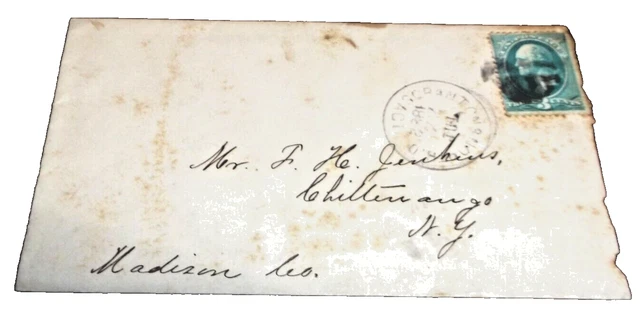 Mr. F. H. Jenkins,
Chittenango
N. Y.
Madison Co.